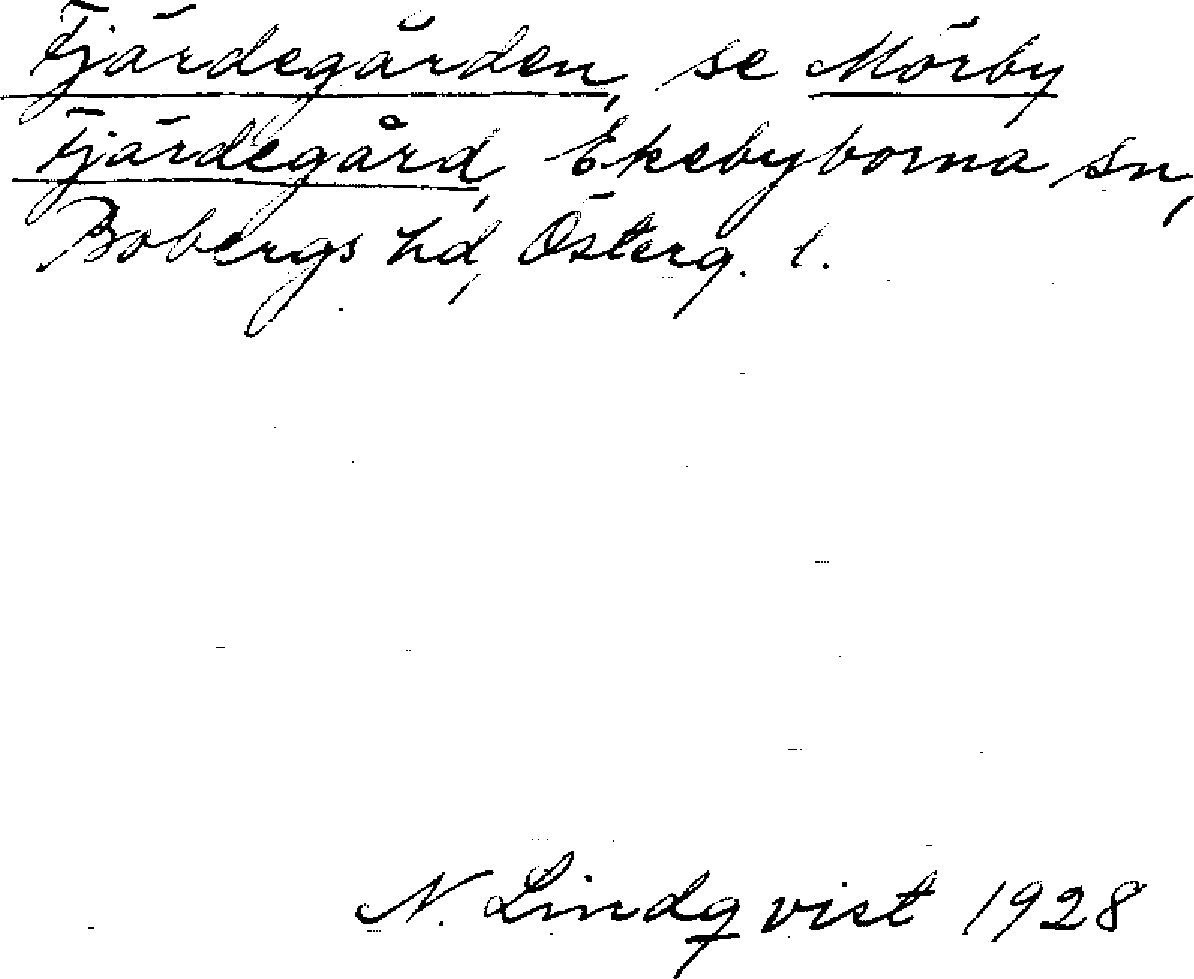 Fjärdegården, se Mörby
Fjärdegård, Ekebyborna sn,
Bobergs hd, Österg. l.
N. Lindqvist 1928